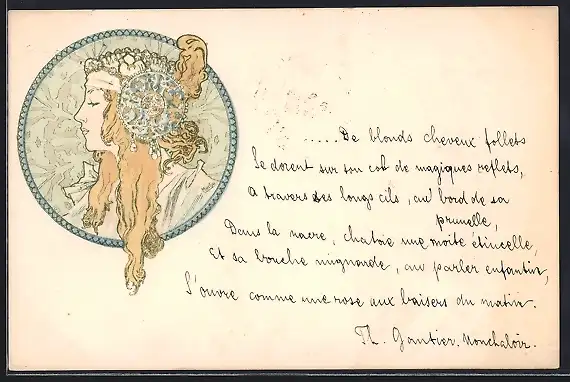 .....De blonds cheveux follets
Se dorent sur son col de magiques reflets,
A travers ses longs cils, au bord de sa
prunelle,
Dans la nacre, chatoie une moite étincelle,
Et sa bouche mignarde, au parler enfantin,
S'ouvre comme une rose aux baisers du matin.
Th. Gautier. Nonchaloir.